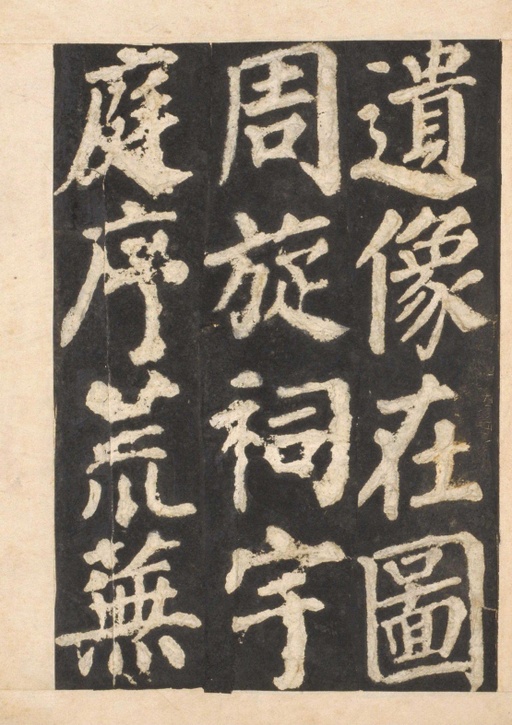 遺像在圖
周旋祠宇
庭序荒蕪